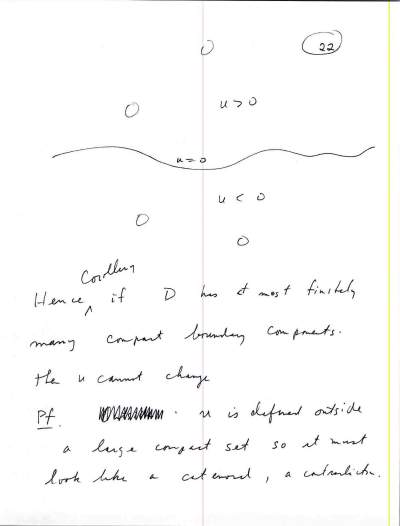 22
u > 0
u = 0
u < 0
Corollary
Hence if D has at most finitely
many compact boundary components.
the u cannot change
Pf. u is defined outside
a large compact set so it must
look like a catenoid, a contradiction.